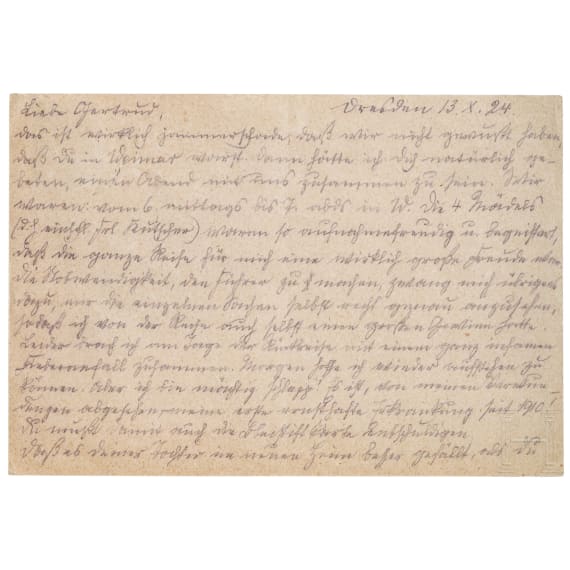 Liebe Gertrud, Dresden 13. X. 24.
das ist wirklich jammerschade, daß wir nicht gewußt haben,
daß du in Weimar warst. Dann hätte ich dich natürlich ge-
beten, einen Abend mit uns zusammen zu sein. Wir
waren vom 6. mittags bis 7. abds in W. Die 4 Mädels
(d. h. einschl. Frl. Kutscher) waren so aufnahmefreudig u. begeistert,
daß die ganze Reise für mich eine wirklich große Freude war.
Die Notwendigkeit, den Führer zu machen, zwang mich übrigens
dazu, mir die einzelnen Sachen selbst recht genau anzusehen,
sodaß ich von der Reise auch selbst einen großen Gewinn hatte.
Leider brach ich am Tage der Rückreise mit einem ganz infamen
Fieberanfall zusammen. Morgen hoffe ich wieder aufstehen zu
können. Aber ich bin mächtig schlapp! Es ist, von meinen
abgesehen, meine erste ernsthafte Erkrankung seit 1910.
Du mußt damit auch die Bleistift Karte entschuldigen.
Daß es deiner Tochter im neuen Heim besser gefällt, als du